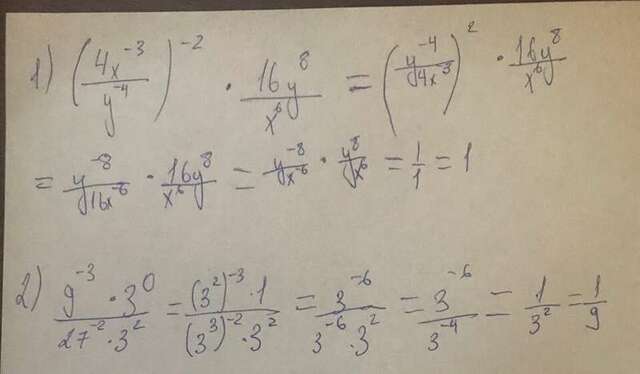 1) (4x⁻³/y⁻⁴)⁻² · 16y⁸/x⁶ = (y⁻⁴/4x³)² · 16y⁸/x⁶
= y⁻⁸/16x⁻⁶ · 16y⁸/x⁶ = y⁻⁸/x⁻⁶ · y⁸/x⁶ = 1/1 = 1
2) 9⁻³ · 3⁰/27⁻² · 3² = (3²)⁻³ · 1/(3³)⁻² · 3² = 3⁻⁶/3⁻⁶ · 3² = 3⁻⁶/3⁻⁴ = 1/3² = 1/9